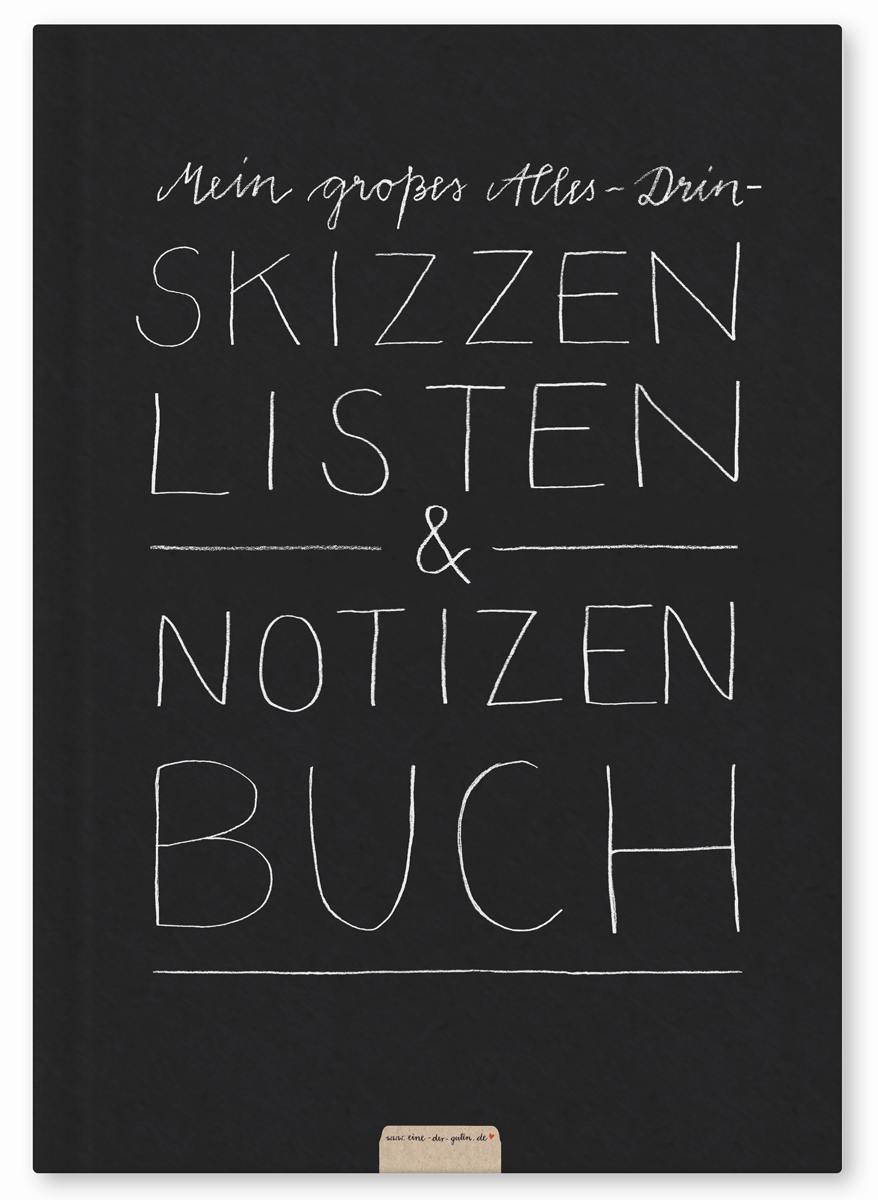 Mein großes Alles-Drin-
SKIZZEN
LISTEN
&
NOTIZEN
BUCH
www.eine-der-guten.de